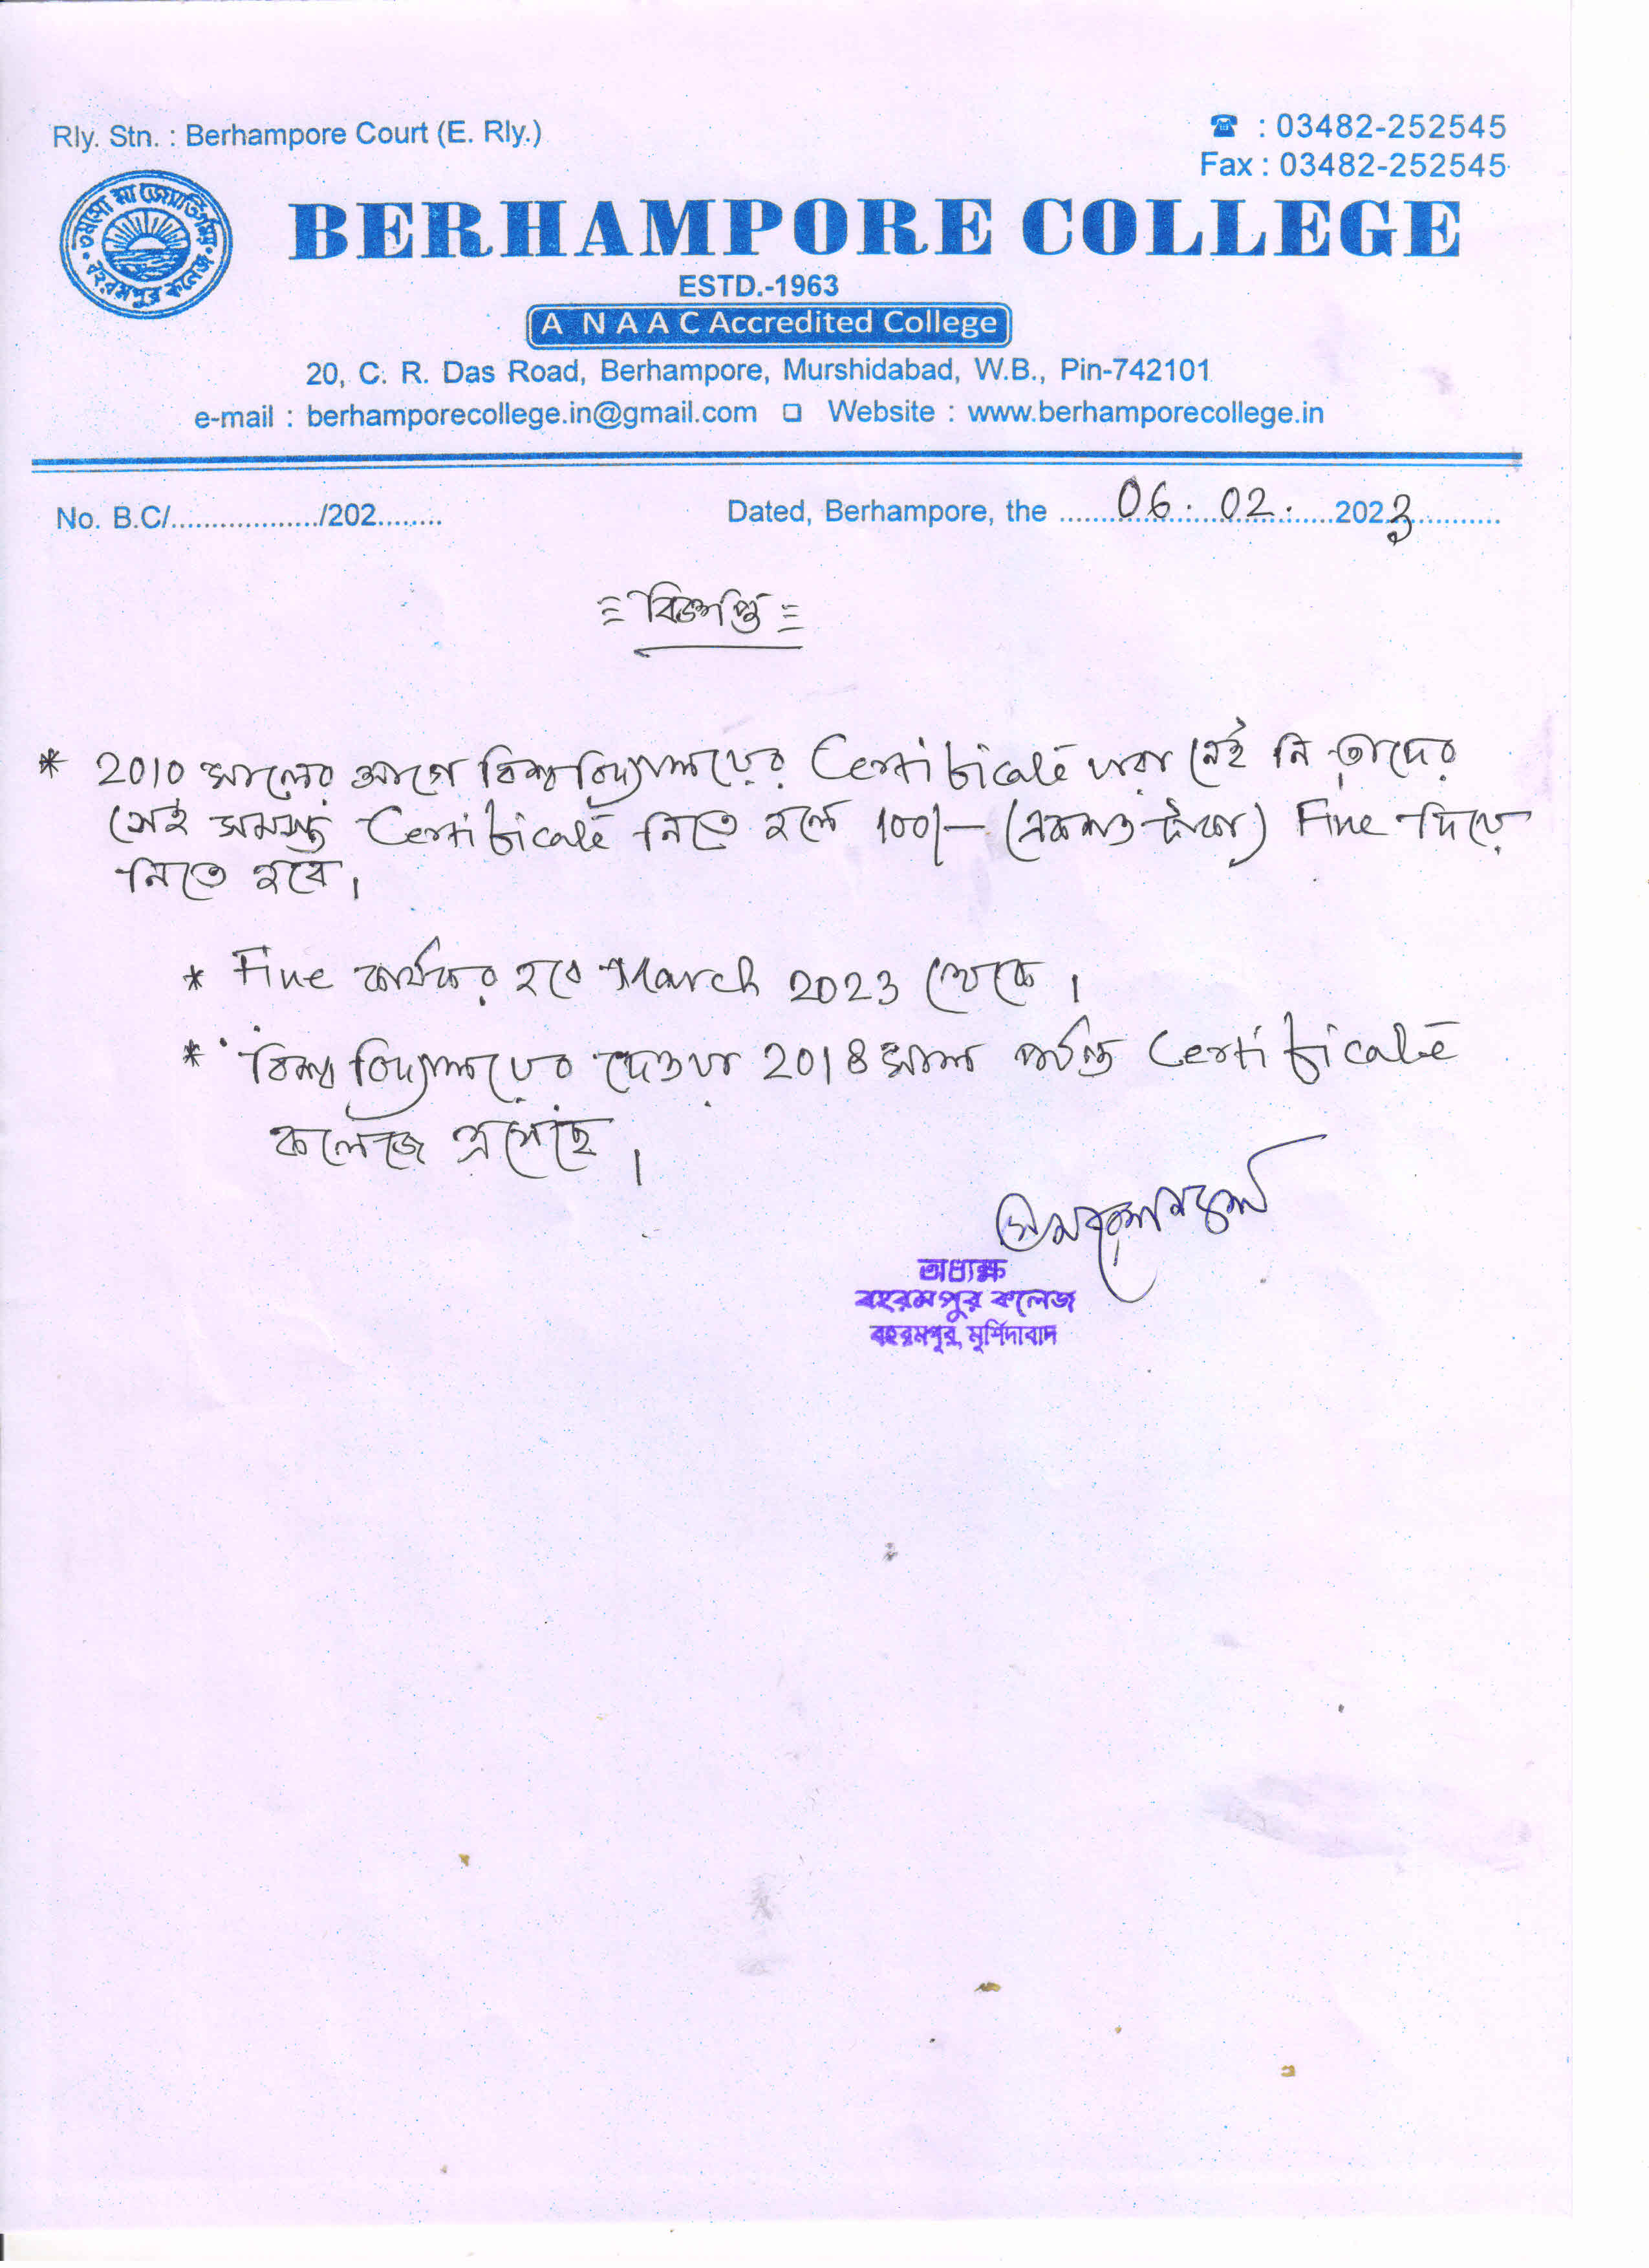 Rly. Stn. : Berhampore Court (E. Rly.)
☎ : 03482-252545
Fax : 03482-252545
তমসো মা জ্যোতির্গময়
বহরমপুর কলেজ
BERHAMPORE COLLEGE
ESTD.-1963
A NAAC Accredited College
20, C. R. Das Road, Berhampore, Murshidabad, W.B., Pin-742101
e-mail : berhamporecollege.in@gmail.com □ Website : www.berhamporecollege.in
No. B.C/.................../202........
Dated, Berhampore, the ......06.02.......2023..............
বিজ্ঞপ্তি
* 2010 সালের আগে বিশ্ববিদ্যালয়ের Certificate যারা নেই নি তাদের
সেই সমস্ত Certificate নিতে হলে 100/- (একশত টাকা) Fine দিয়ে
নিতে হবে।
* Fine কার্যকর হবে March 2023 থেকে।
* বিশ্ববিদ্যালয়ের দেওয়া 2018 সাল পর্যন্ত Certificate
কলেজে এসেছে।
অধ্যক্ষ
বহরমপুর কলেজ
বহরমপুর, মুর্শিদাবাদ